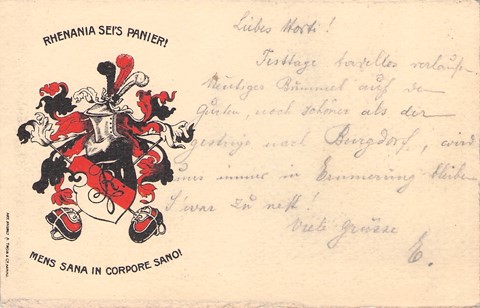 RHENANIA SEI'S PANIER!
MENS SANA IN CORPORE SANO!
Liebes Morti!
Festtage tadellos verlaufen.
Heutiger Bummel auf den
Gurten, noch schöner als der
gestrige nach Burgdorf, wird
uns immer in Erinnerung bleiben
S'war zu nett!
Viele Grüsse
E.